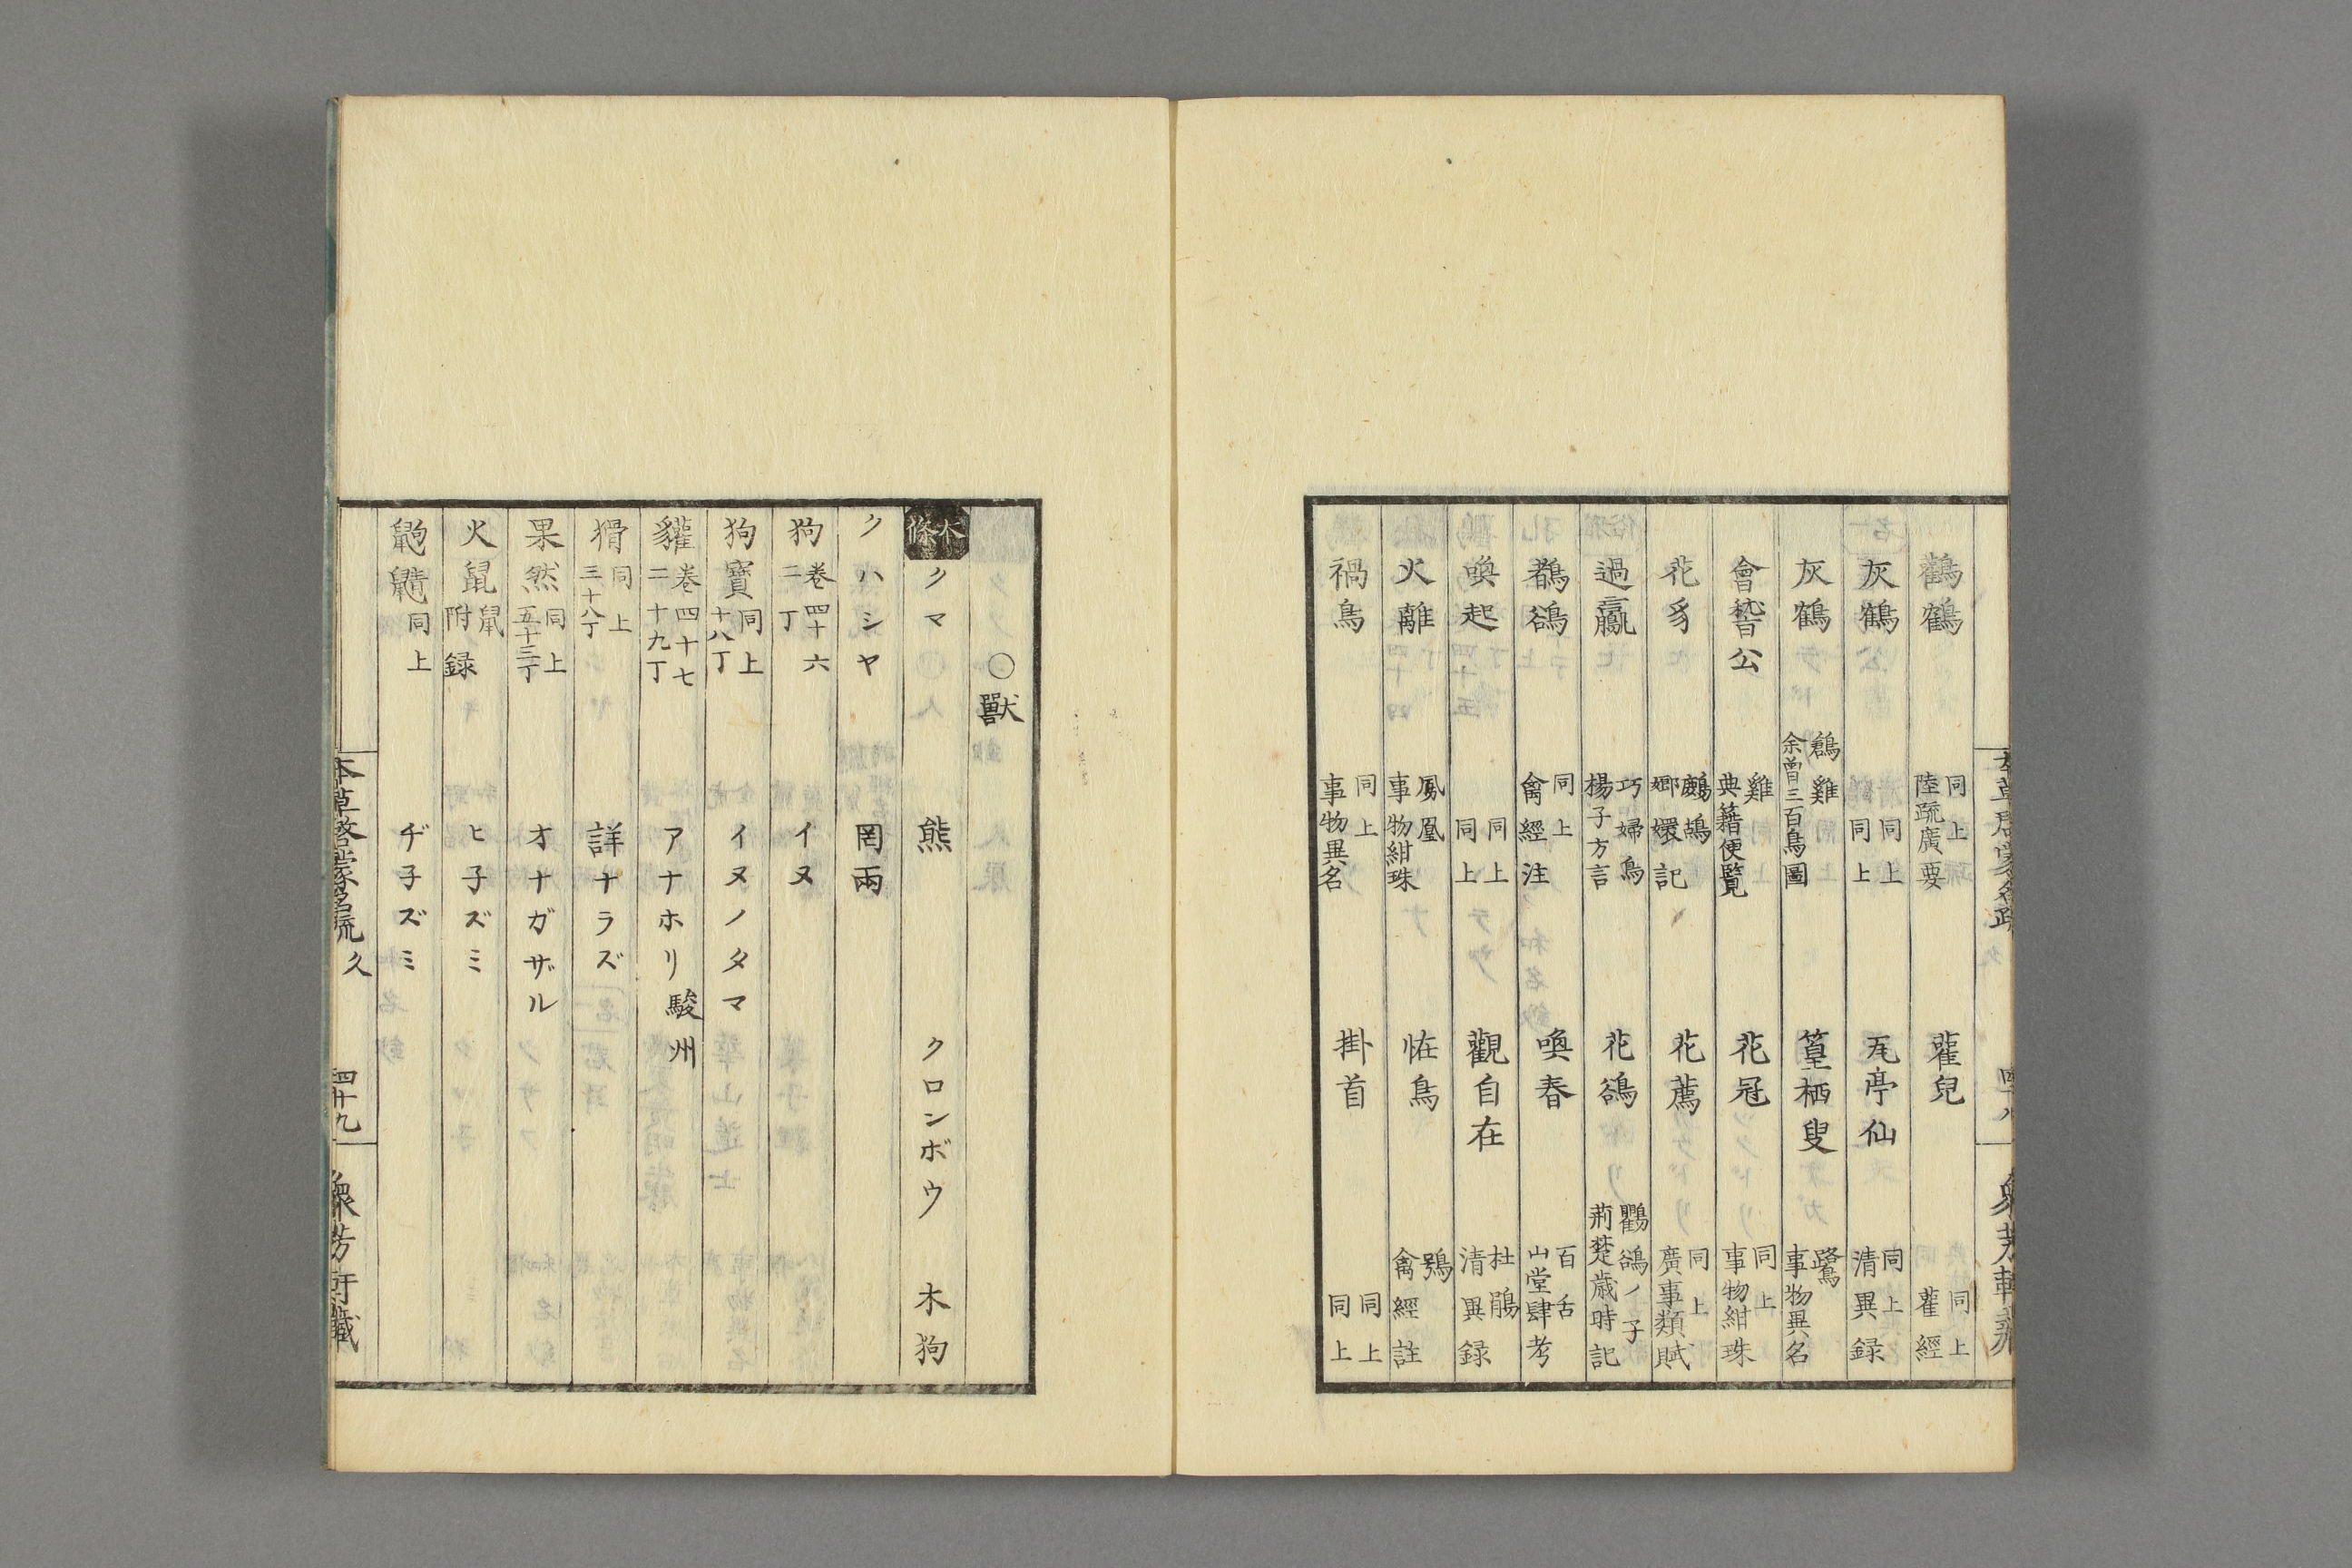 鸛鶴 同上 陸疏廣要 雚皃 同上 雚經
灰鶴 同上 同上 瓦亭仙 同上 清異録
灰鶴 鶬雞 余曾三百鳥圖 篁栖叟 鷺 事物異名
會稽公 雞 典籍便覧 花冠 同上 事物紺珠
花豸 鷓鴣 嫏嬛記 花薦 同上 廣事類賦
過蠃 巧婦鳥 楊子方言 花鵒 鸜鵒ノ子 荊楚歳時記
鵲鵒 同上 禽經注 喚春 百舌 山堂肆考
喚起 同上 同上 觀自在 杜鵑 清異録
火離 鳳凰 事物紺珠 恠鳥 鴞 禽經註
禍鳥 同上 事物異名 掛首 同上 同上
〇獸
本條 クマ 熊 クロンボウ 木狗
クハシヤ 罔兩
狗 卷四十六 二丁 イヌ
狗寶 同上 十八丁 イヌノタマ
貛 卷四十七 二十九丁 アナホリ 駿州
猾 同上 三十八丁 詳ナラズ
果然 同上 五十三丁 オナガザル
火鼠 鼠附録 ヒ子ズミ
同上 ヂ子ズミ
本草啓蒙名疏 久 四十九 衆芳軒藏